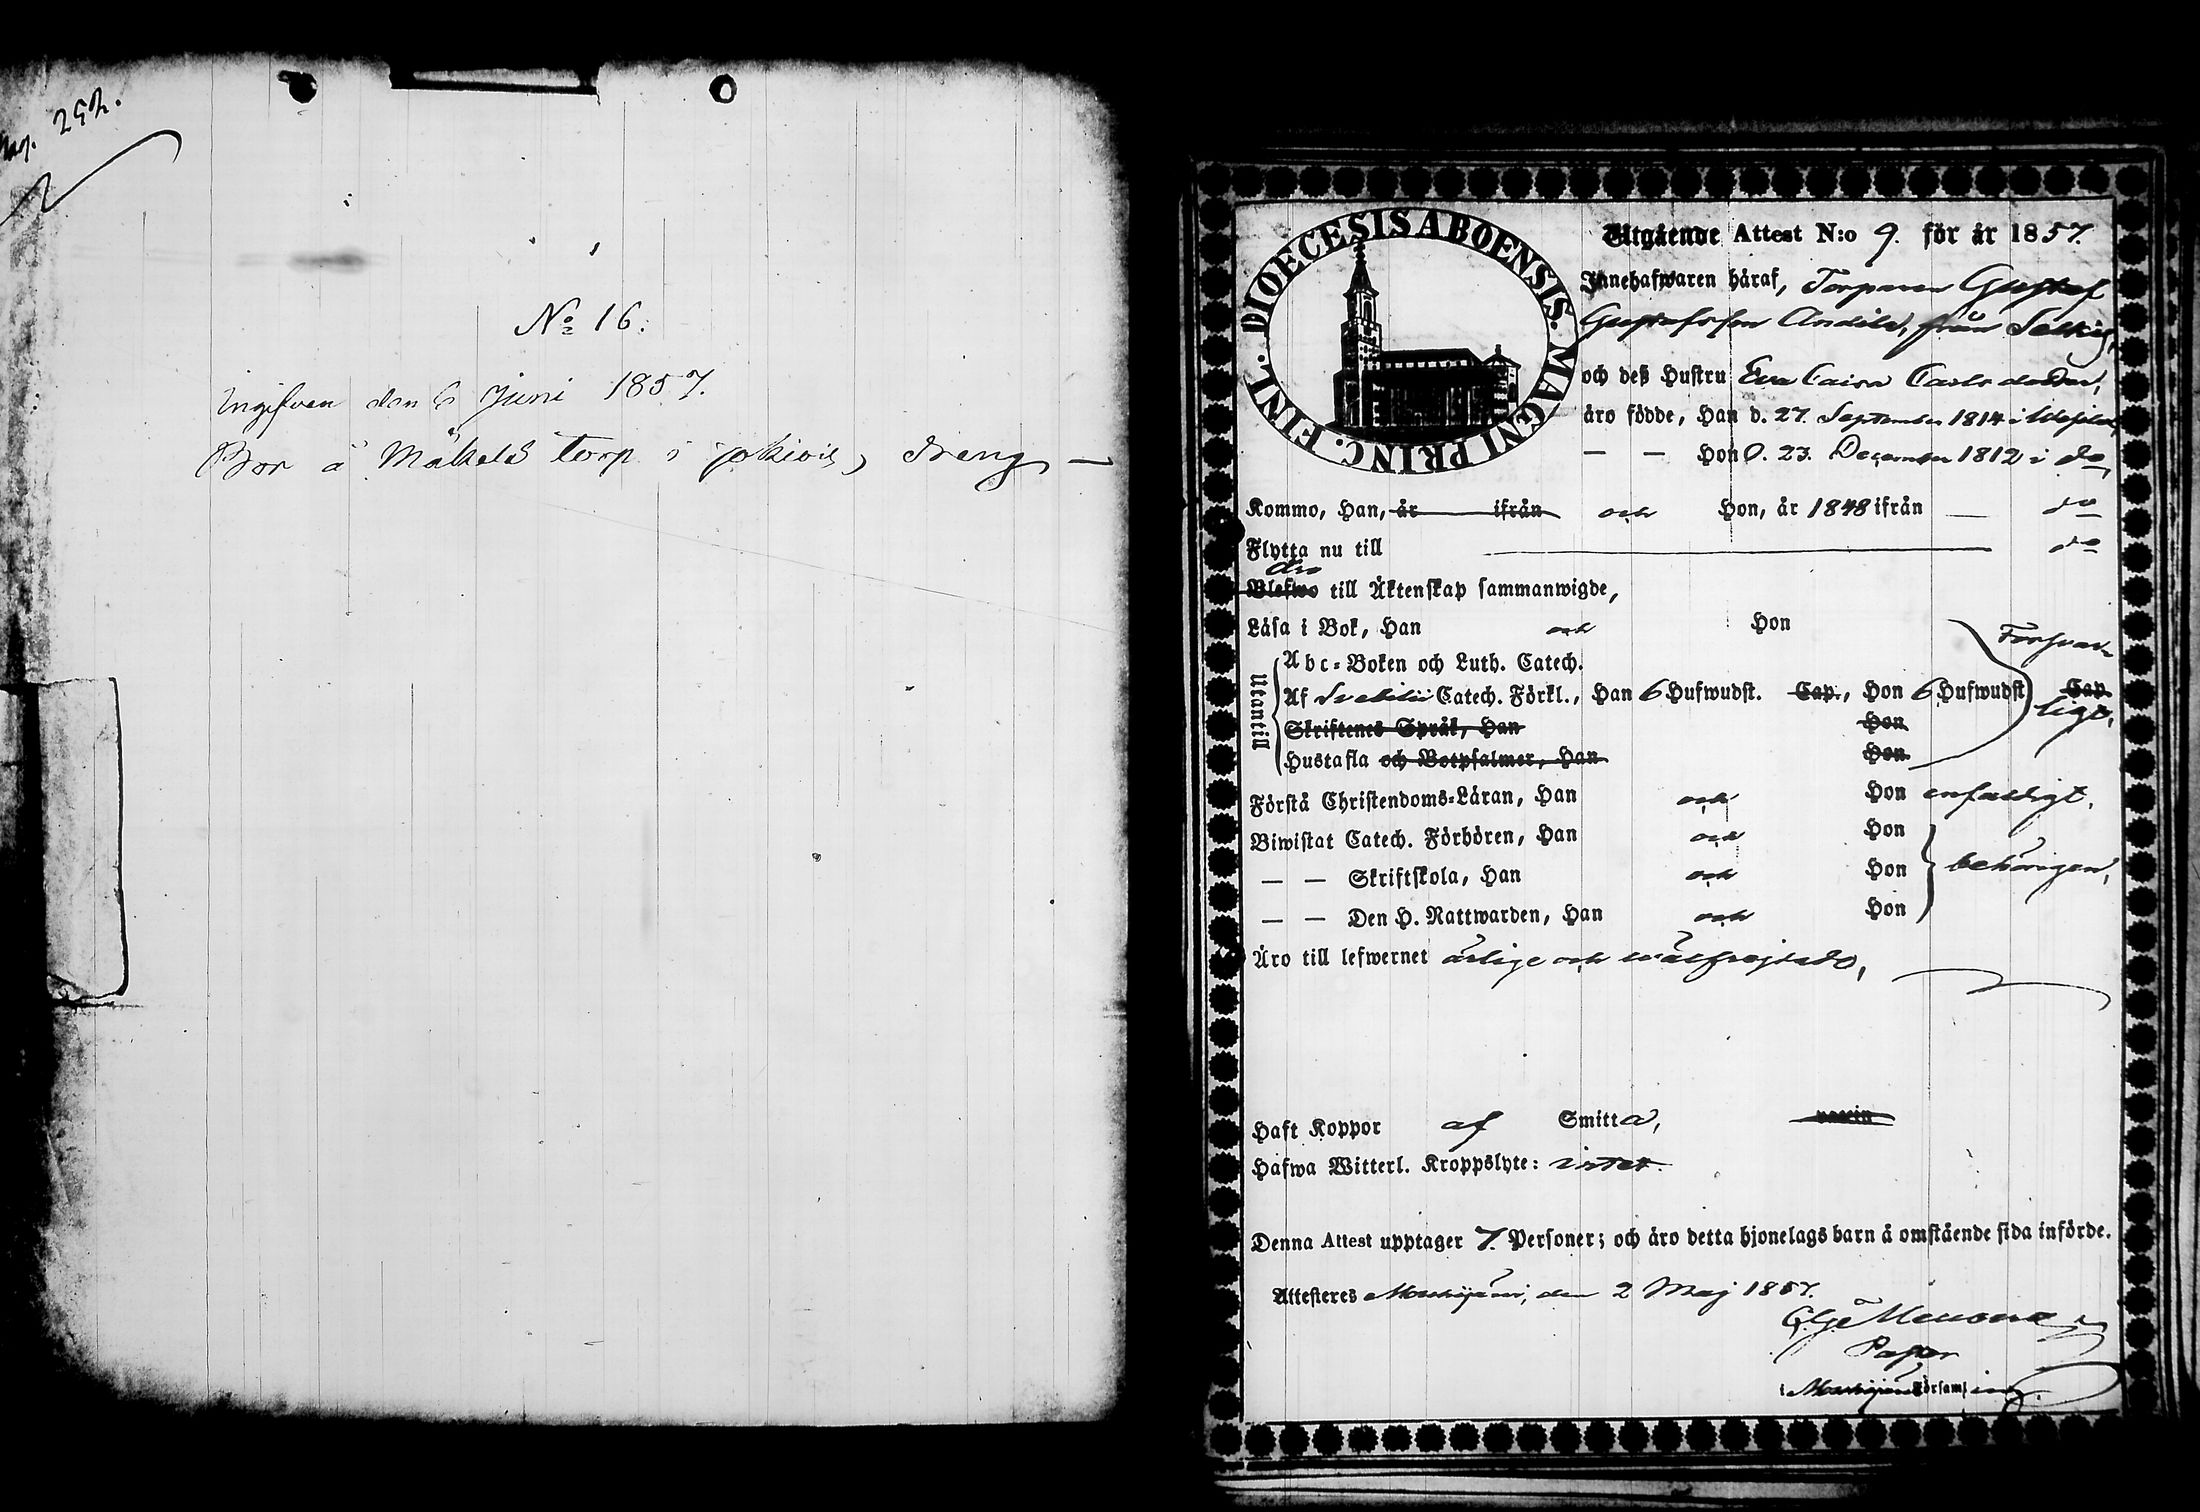 pag. 252.
No 16.
Ingifven den 6 Juni 1857.
Bor å Mäkelä torp i Jokiois, dreng
DIOECESIS ABOENSIS. MAGNI PRINC. FINL.
Utgående Attest N:o 9. för år 1857.
Innehafwaren häraf, Torparen Gustaf
Gustafsson Andila, från Selkis,
och deß Hustru Eva Caisa Carlsdotter,
äro födde, Han d. 27. September 1814 i
— — Hon d. 23. December 1812 i do,
Kommo, Han, år ifrån och Hon, år 1848 ifrån — do
Flytta nu till — do
äro
Blefwo till Äktenskap sammanwigde,
Läsa i Bok, Han och Hon Försvar-
Utantill
Abc-Boken och Luth. Catech.
Af Svebilii Catech. Förkl., Han 6 Hufwudst. Cap., Hon 6 Hufwudst. Cap.
ligt,
Skriftenes Språk, Han Hon
Hustafla och Botpsalmer, Han Hon
Förstå Christendoms-Läran, Han och Hon enfaldigt,
Biwistat Catech. Förhören, Han och Hon
— — Skriftskola, Han och Hon behörigen,
— — Den H. Nattwarden, Han och Hon
Äro till lefwernet ärlige och wälfrejdade,
Haft Koppor af Smitta, vaccin
Hafwa Witterl. Kroppslyte: intet.
Denna Attest upptager 7. Personer; och äro detta hjonelags barn å omstående sida införde.
Attesteres Mouhijärvi, den 2 Maj 1857.
Pastor
i Mouhijärvi Församling.